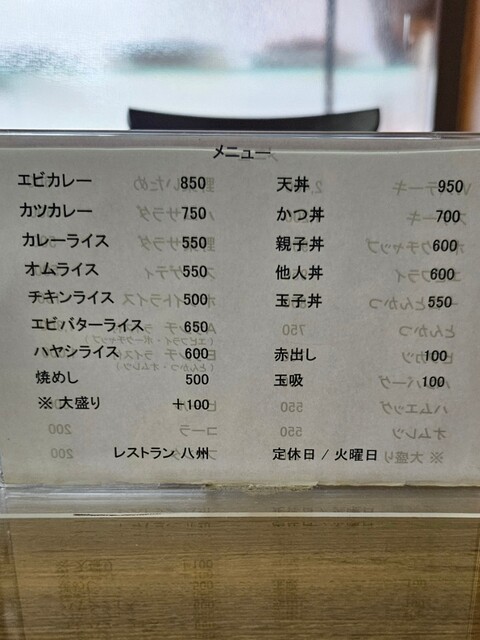 メニュー
エビカレー 850
カツカレー 750
カレーライス 550
オムライス 550
チキンライス 500
エビバターライス 650
ハヤシライス 600
焼めし 500
※ 大盛り +100
天丼 950
かつ丼 700
親子丼 600
他人丼 600
玉子丼 550
赤出し 100
玉吸 100
レストラン 八州 定休日 / 火曜日